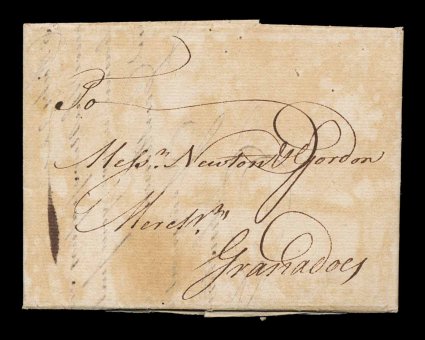 To
Messrs Newton & Gordon
Merchts
Granadoes